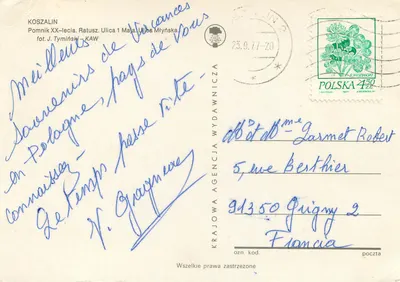 KOSZALIN
Pomnik XX-lecia. Ratusz. Ulica 1 Maja. Młyńska
fot. J. Tymiński — KAW
Meilleurs
Souvenirs de Vacances
en Pologne, pays de vous
connaissez
Le temps passe vite
V.
KRAJOWA AGENCJA WYDAWNICZA
23.9.77-20
POLSKA 4,50
Mr et Mme Jarmet Robert
5, rue Berthier
91350 Grigny 2
Francia
ozn. kod.
poczta
Wszelkie prawa zastrzeżone